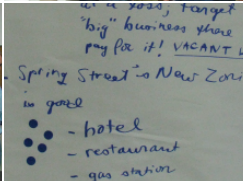 at a loss, target
"big" business there
pay for it! VACANT
- Spring Street is New Zoni
is good
- hotel
- restaurant
- gas station